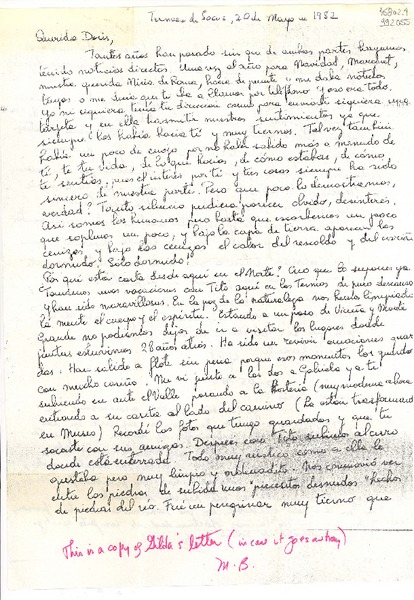 Termas de Socos, 20 de Mayo de 1982
Querida Doris,
Tantos años han pasado sin que de ambas partes hayamos
tenido noticias directas. Una vez al año para Navidad, Margaret,
nuestra querida Missis de Rone, hacía de puente y me daba noticias
tuyas o me decía que te iba a llamar por teléfono y eso era todo.
Yo ni siquiera tenía tu dirección como para enviarte siquiera una
tarjeta y en ella trasmitir nuestros sentimientos ya que
siempre los había hacia tí y muy tiernos. Tal vez también
había un poco de enojo por no haber sabido más a menudo de
tí, de tu vida, de lo que hacías, de cómo estabas, de cómo
te sentías, pues el interés por tí y tus cosas siempre ha sido
sincero de nuestra parte. Pero que poco lo demostramos,
verdad? Tanto silencio pudiera parecer olvido, desinterés.
Así somos los humanos pero basta que escarbemos un poco
que soplemos un poco, y bajo la capa de tierra aparecen las
cenizas y bajo las cenizas el calor del rescoldo y del cariño
dormido. Sólo dormido.
Por qué esta carta desde aquí en el Norte? Creo que lo supones ya.
Tomamos unas vacaciones con Tito aquí en las Termas de puro descanso
y han sido maravillosas. En la paz de la naturaleza nos hemos limpiado
la mente el cuerpo y el espíritu. Estando a un paso de Vicuña y Monte
Grande no podíamos dejar de ir a visitar los lugares donde
juntas estuvimos 28 años atrás. Ha sido un revivir emociones guar
dadas. Han salido a flote sin pena porque esos momentos los guardo
con mucho cariño. Me vi junto a las dos a Gabriela y a tí
subiendo en auto el Valle pasando a la Hostería (muy moderna ahora)
entrando a su casita al lado del camino (La están transformando
en Museo) Recordé las fotos que tengo guardadas y que te
sacaste con sus amigas. Después con Tito subimos al cerro
donde está enterrada. Todo muy rústico como a ella le
gustaba pero muy limpio y ordenadito. Nos conmovió ver
entre las piedras de subida unos "piececitos desnudos" hechos
de piedras del río. Fue un peregrinar muy tierno que
This is a copy of Gilda's letter (in case it goes astray)
M. B.